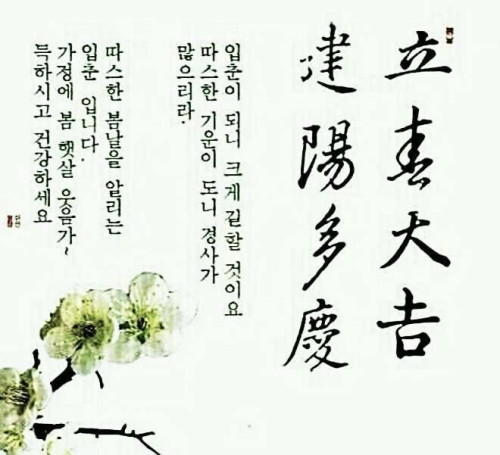 立春大吉
建陽多慶
입춘이 되니 크게길할 것이요
따스한 기운이 도니 경사가
많으리라.
따스한 봄날을 알리는
입춘 입니다.
가정에 봄 햇살 웃음가~
득하시고 건강하세요